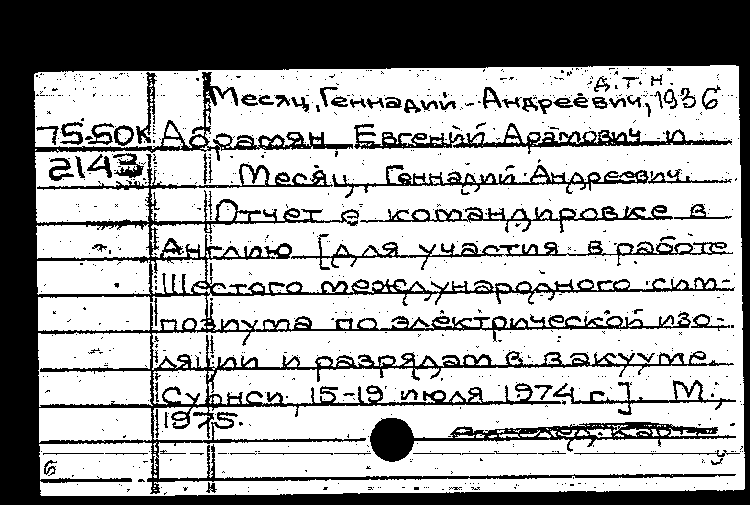 д.т.н.
Месяц, Геннадий Андреевич, 1936
75-50К Абрамян, Евгений Арамович и
2143 Месяц, Геннадий Андреевич.
Отчет о командировке в
Англию [для участия в работе
Шестого международного сим-
позиума по электрической изо-
ляции и разрядам в вакууме.
Суонси, 15-19 июля 1974 г.]. М.,
1975.
б у